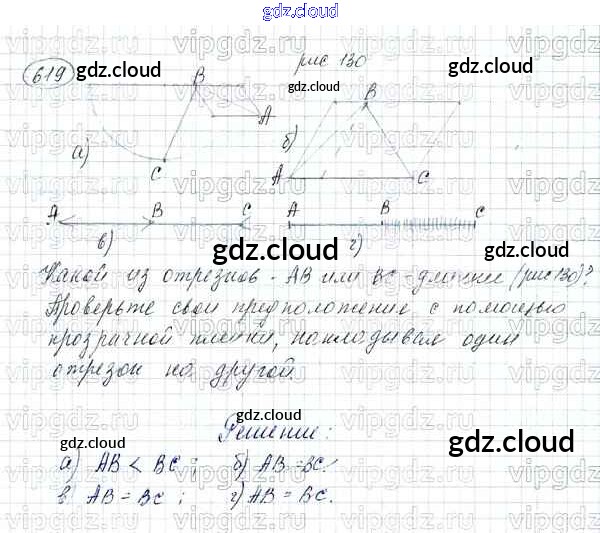 gdz.cloud
619
gdz.cloud
рис 130
gdz.cloud
B
A
а)
C
B
б)
A
C
gdz.cloud
A
B
C
в)
A
B
C
г)
gdz.cloud
gdz.cloud
Какой из отрезков - AB или BC - длиннее (рис 130)?
Проверьте свои предположение с помощью
прозрачной пленки, накладывая один
отрезок на другой.
gdz.cloud
Решение:
gdz.cloud
а) AB < BC ; б) AB = BC;
в) AB = BC ; г) AB = BC.
gdz.cloud